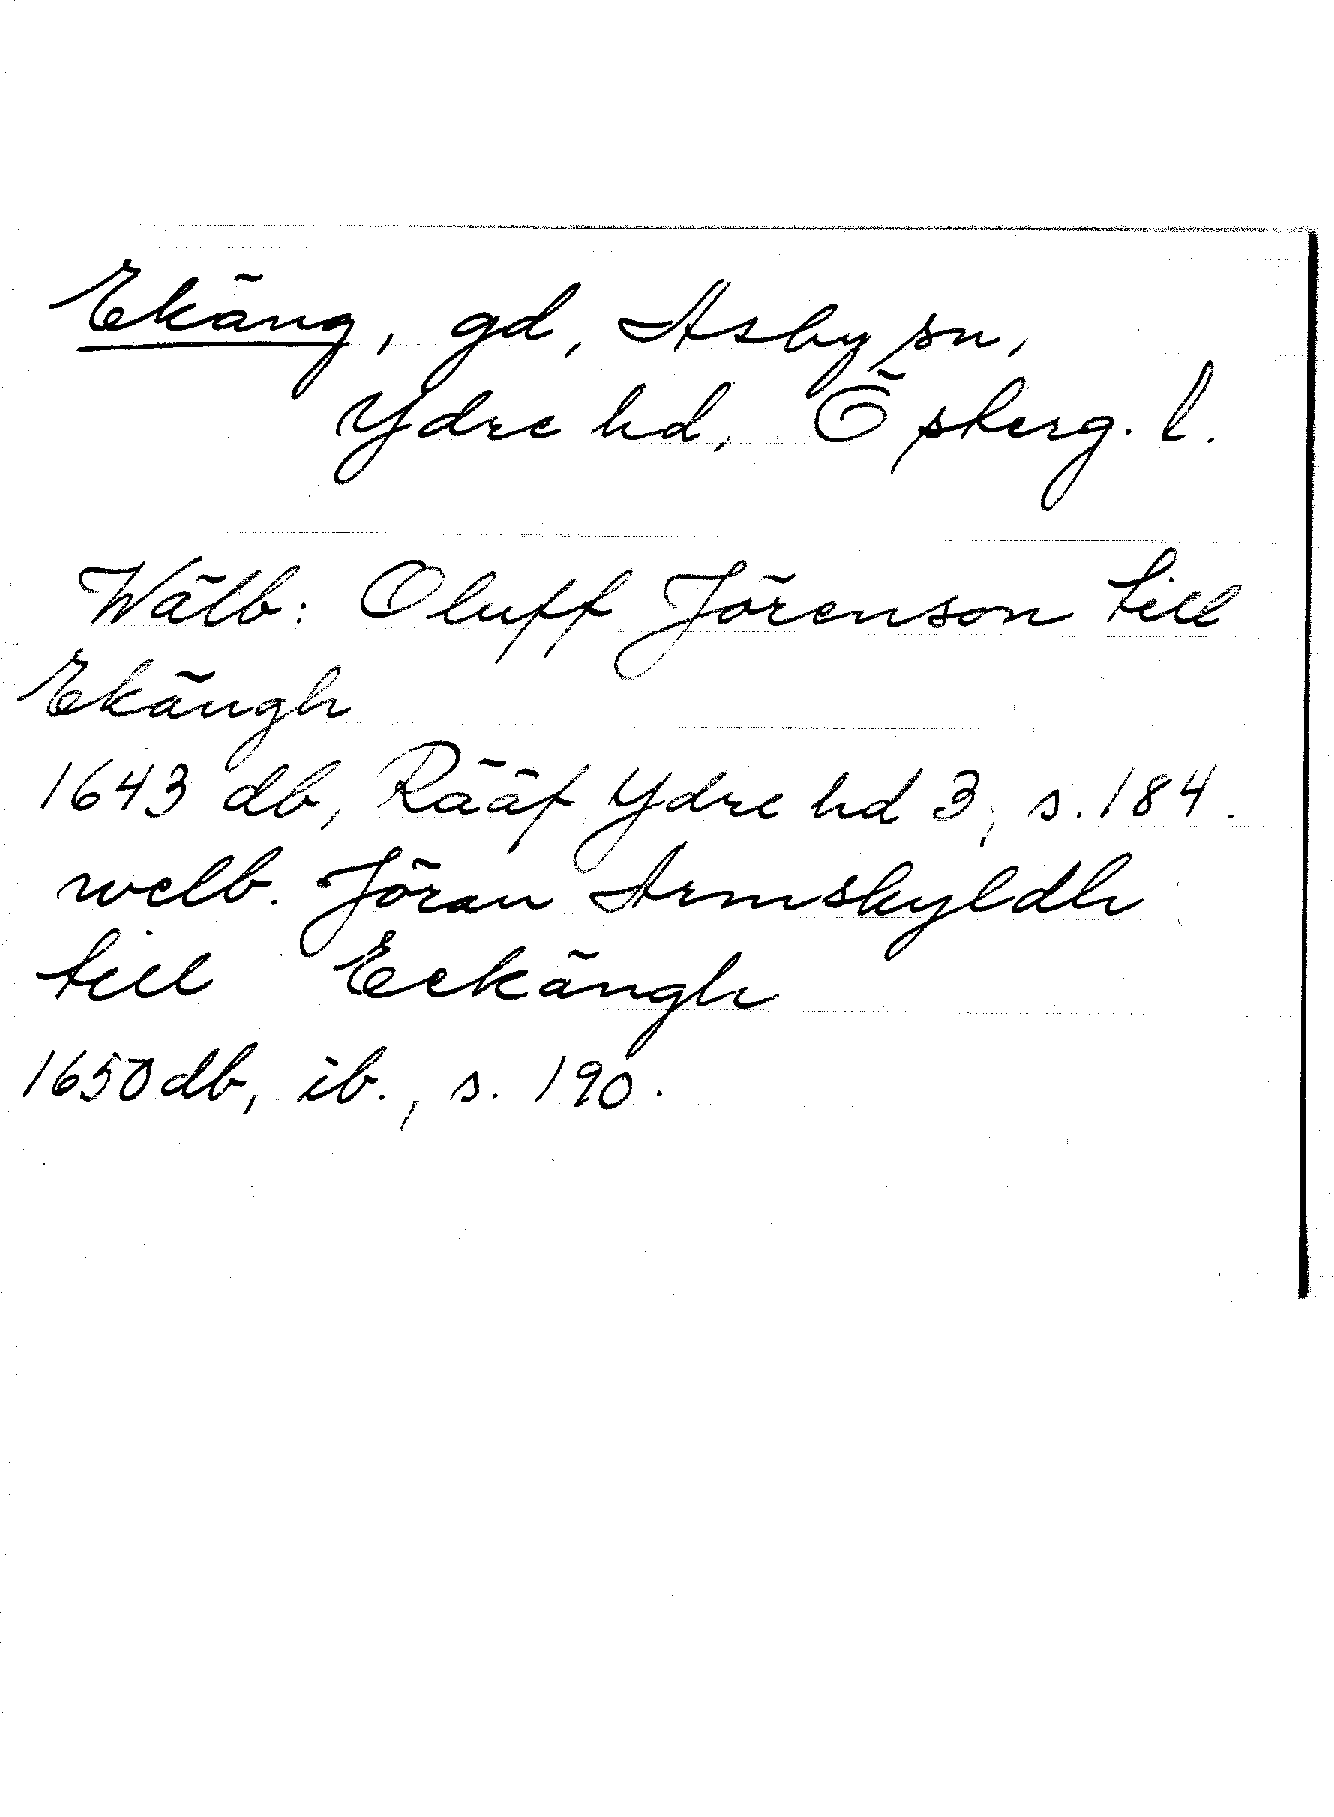 Ekäng, gd, Asby sn,
Ydre hd, Österg. l.
Wälb: Oluff Jörenson till
Ekängh
1643 db, Rääf Ydre hd 3, s. 184.
welb. Jöran Armskyldh
till Eekängh
1650 db, ib., s. 190.